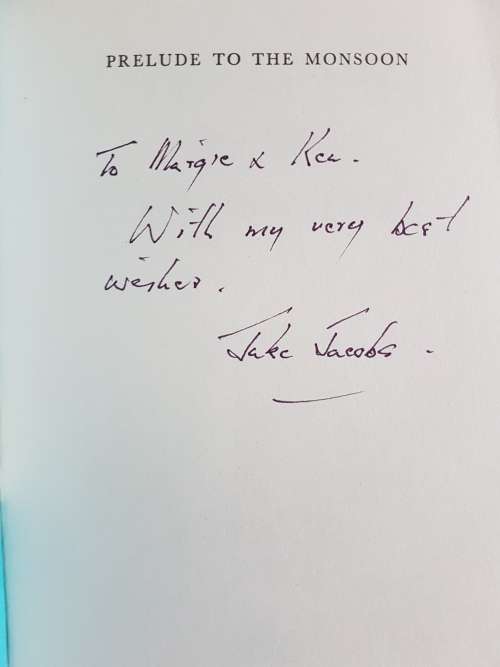 PRELUDE TO THE MONSOON
To Margie & Ken.
With my very best
wishes.
Jake Jacobs.